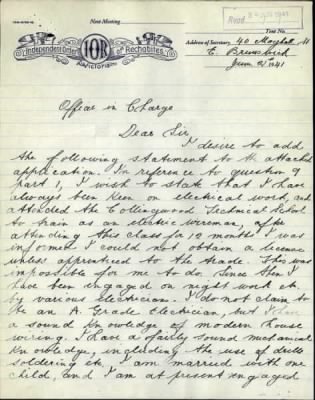 Next Meeting
Tent No.
Address of Secretary 40 Marshall St
E. Brunswick
June 2/1941
Independent Order
IOR
of Rechabites
Victorian
Recd
Officer in Charge
Dear Sir,
I desire to add
the following statement to the attached
application. In reference to question 9
part 1, I wish to state that I have
always been keen on electrical work, and
attended the Collingwood Technical School
to train as an electric wireman, after
attending this class for 12 months I was
informed I could not obtain a license
unless apprenticed to the trade. This was
impossible for me to do. Since then I
have been engaged on night work etc
by various electricians. I do not claim to
be an A. Grade Electrician, but I have
a sound knowledge of modern house
wiring. I have a fairly sound mechanical
knowledge, including the use of drills
soldering etc. I am married with one
child, and I am at present engaged